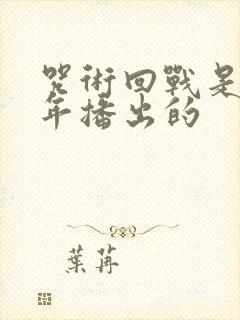 咒術回戰是
年播出的
葉苒